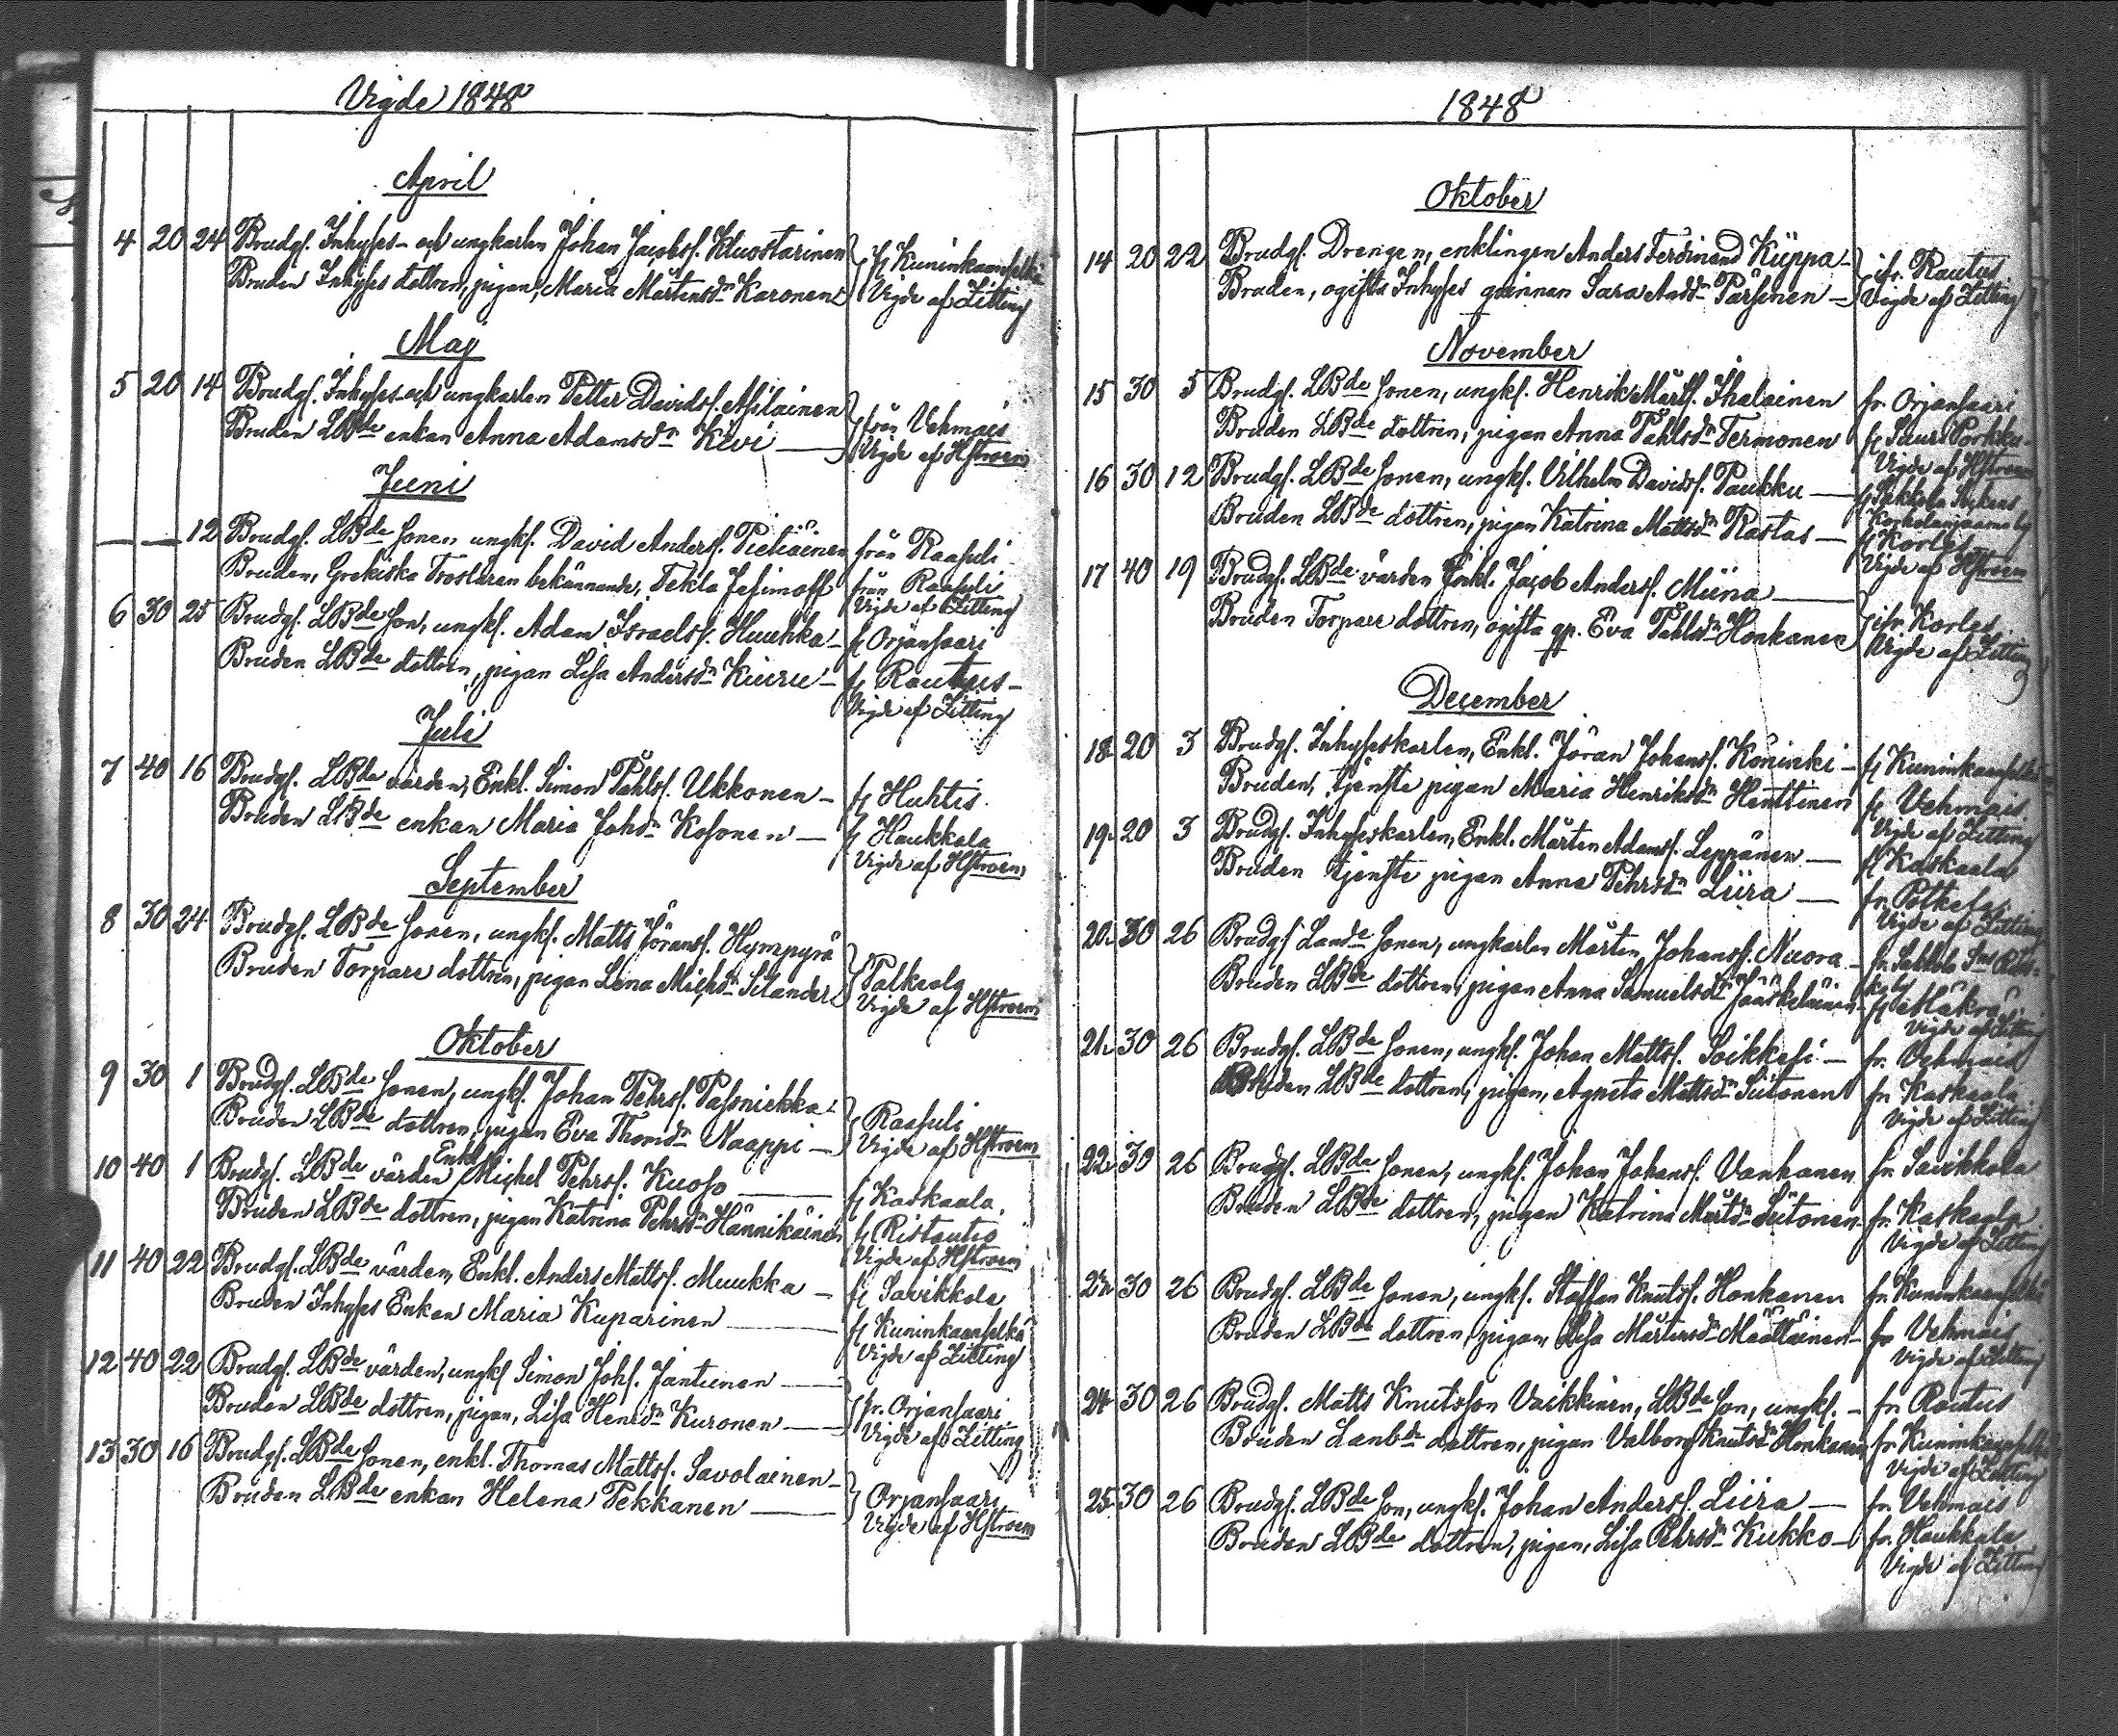 Vigde 1848
April
4 20 24 Brudg. Inhyses- och ungkarlen Johan Jacobss. Kluostarinen } fr Kuninkaanselkä
Bruden Inhyses dottren, pigan, Maria Mårtensdn Karonen Vigde af Zitting
Maj
5 20 14 Brudg. Inhyses- och ungkarlen Petter Davidss. Asilainen } från Vehmais
Bruden LBde enkan Anna Adamsdn Kivi — Vigde af Hstroem
Juni
— — 12 Brudg. LBde sonen ungk. David Anderss. Pietiäinen från Raasuli
Bruden, Grekiska Trosläran bekännande, Tekla Jefimoff från Raasuli
Vigde af Zitting
6 30 25 Brudg. LBde son, ungk. Adam Israelss. Huuhka — fr Orjansaari
Bruden LBde dottren, pigan Lisa Andersdn Kiuru — fr Rautus —
Vigde af Zitting
Juli
7 40 16 Brudg. LBde värden, Enkl. Simon Påhlss. Ukkonen — fr Huhtis
Bruden LBde enkan Maria Johsdn Kosonen — fr Haukkala
Vigde af Hstroem
September
8 30 24 Brudg. LBde sonen, ungk. Matts Jöranss. Hympyrä } Palkeala
Bruden Torpare dottren, pigan Lena Michsdn Silander Vigde af Hstroem
Oktober
9 30 1 Brudg. LBde sonen, ungk. Johan Pehrss. Pasniekka } Raasuli
Bruden LBde dottren, pigan Eva Thomsdn Naappi — Vigde af Hstroem
10 40 1 Brudg. LBde värden Enkl. Michel Pehrss. Kuoso — fr Kaskaala
Bruden LBde dottren, pigan Katrina Pehrsdn Hännikäinen fr Ristautio
Vigde af Hstroem
11 40 22 Brudg. LBde värden, Enkl. Anders Mattss. Muukka — fr Savikkola
Bruden Inhyses Enkan Maria Kuparinen — fr Kuninkaanselkä
Vigde af Zitting
12 40 22 Brudg. LBde värden, ungk Simon Johs. Jantunen — } fr. Orjansaari
Bruden LBde dottren, pigan, Lisa Henrdn Kuronen — Vigde af Zitting
13 30 16 Brudg. LBde sonen, enkl. Thomas Mattss. Savolainen — } Orjansaari
Bruden LBde enkan Helena Pekkanen — Vigde af Hstroem
1848
Oktober
14 20 22 Brudg. Drengen, enklingen Anders Ferdinand Küppa — } ifr. Rautus
Bruden, ogifta Inhyses qvinnan Sara Andsdn Pärsinen — Vigde af Zitting
November
15 30 5 Brudg. LBde sonen, ungk. Henrik Mårtss. Ihalainen fr. Orjansaari
Bruden LBde dottren, pigan Anna Påhlsdn Termonen fr Suuri Porkku
Vigde af Hstroem
16 30 12 Brudg. LBde sonen, ungk. Vilhelm Davidss. Paukku — fr Sakkola Sokens
Bruden LBde dottren, pigan Katrina Mattsdn Rastas — fr Korles
Vigde af Hstroem
17 40 19 Brudg. LBde värden Enkl. Jacob Anderss. Miina — } ifr. Korles
Bruden Torpare dottren, ogifta qp. Eva Påhlsdn Honkanen Vigde af Zitting
December
18. 20 3 Brudg. Inhyseskarlen, Enkl. Jöran Johanss. Köninki — fr Kuninkaanselkä
Bruden, tjenste pigan Maria Henriksdn Henttinen fr Vehmais
Vigde af Zitting
19. 20 3 Brudg. Inhyseskarlen, Enkl. Mårten Adamss. Leppänen — fr Kaskaala
Bruden tjenste pigan Anna Pehrsdn Liira — fr. Potkela
Vigde af Zitting
20. 30 26 Brudg Landde sonen, ungkarlen Mårten Johanss. Nuora — fr. Sakkola
Bruden LBde dottren, pigan Anna Samuelsdn Jääskeläinen — fr Mäkrä
Vigde af Zitting
21. 30 26 Brudg. LBde sonen, ungk. Johan Mattss. Soikkeli — fr. Vehmais
Bruden LBde dottren, pigan, Agneta Mattsdn Siitonen fr. Kaskaala
Vigde af Zitting
22. 30 26 Brudg. LBde sonen, ungk. Johan Johanss. Vanhanen fr. Savikkola
Bruden LBde dottren, pigan Katrina Mårtsdn Siitonen fr. Kaskaala
Vigde af Zitting
23. 30 26 Brudg. LBde sonen, ungk. Staffan Knutss. Honkanen fr. Kuninkaanselkä
Bruden LBde dottren, pigan, Lisa Mårtensdn Määttäinen — fr Vehmais
Vigde af Zitting
24 30 26 Brudg. Matts Knutsson Vaikkinen, LBde son, ungk. — fr. Rautus
Bruden Lanbde dottren, pigan Valborg Knutsdn Honkanen fr Kuninkaanselkä
Vigde af Zitting
25. 30 26 Brudg. LBde son, ungk. Johan Anderss. Liira — fr. Vehmais
Bruden LBde dottren, pigan, Lisa Pehrsdn Kukko — fr. Haukkala
Vigde af Zitting